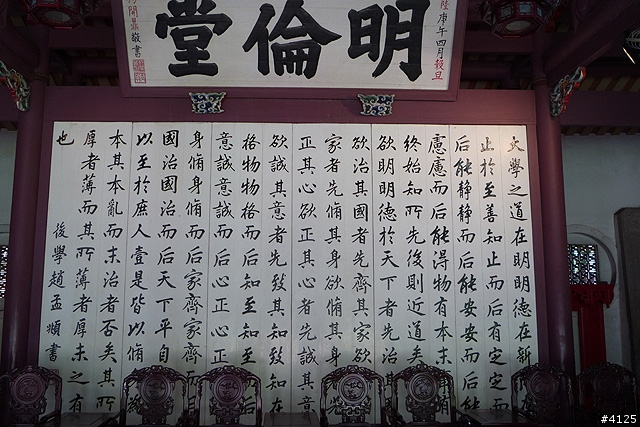 明倫堂
庚午四月穀旦
開鼎敬書
大學之道在明明德在新
止於至善知止而后有定定而
后能静静而后能安安而后
慮慮而后能得物有本末
終始知所先後則近道矣
欲明明德於天下者先治
欲治其國者先齊其家欲
家者先脩其身欲脩其身
正其心欲正其心者先誠其意
欲誠其意者先致其知致知在
格物物格而后知至知至而后
意誠意誠而后心正心正
身脩身脩而后家齊家齊而
國治國治而后天下平自
以至於庶人壹是皆以脩
本其本亂而末治者否矣其所
厚者薄而其所薄者厚未之有
也
後學趙孟頫書
#4125